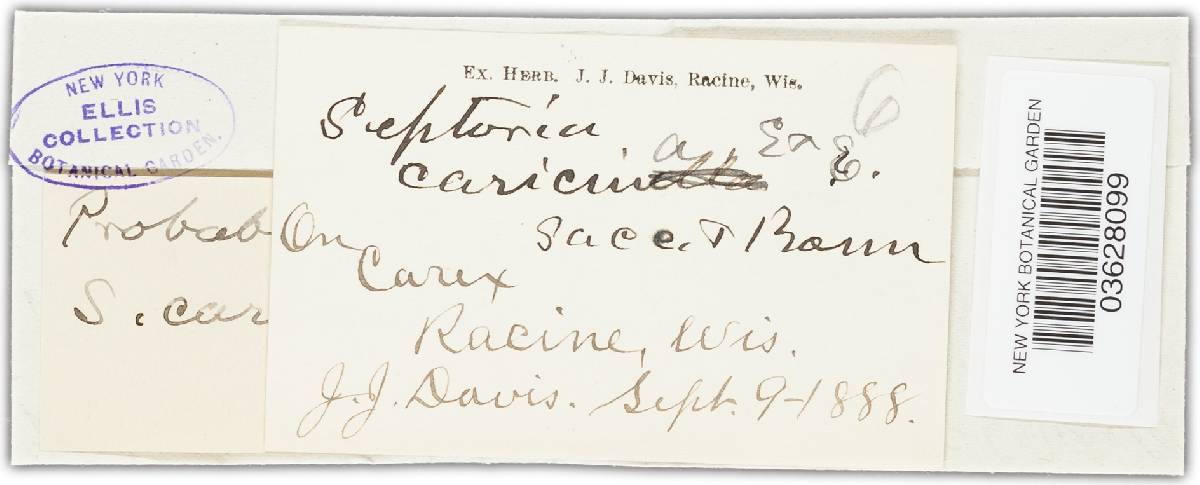 NEW YORK
ELLIS
COLLECTION
BOTANICAL GARDEN.
Probab
S. car
EX. HERB. J. J. Davis, Racine, Wis.
6
Septoria
caricin a
E.
Sacc. & Roum
On
Carex
Racine, Wis.
J. J. Davis. Sept. 9-1888.
NEW YORK BOTANICAL GARDEN
03628099